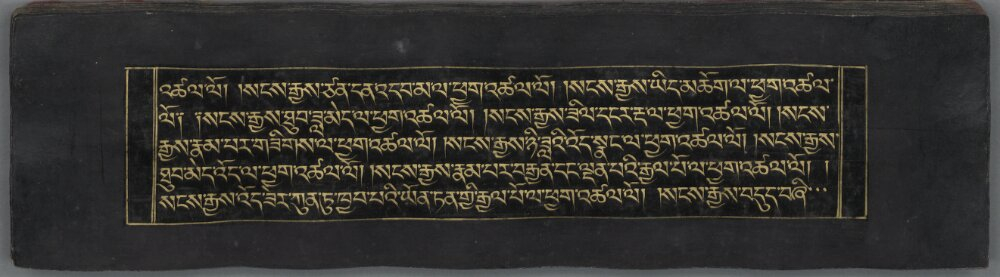 འཚལ་ལོ། །སངས་རྒྱས་ཙན་དན་འདབམ་ལ་ཕྱག་འཚལ་ལོ། །སངས་རྒྱས་ཡིད་མཆོག་ལ་ཕྱག་འཚལ་
ལོ། །སངས་རྒྱས་ཐུབ་ཟླ་མེད་ལ་ཕྱག་འཚལ་ལོ། །སངས་རྒྱས་ཟིལ་དང་ར་དྲ་ལ་ཕྱག་འཚལ་ལོ། །སངས་
རྒྱས་རྣམ་པར་གཟིགས་ལ་ཕྱག་འཚལ་ལོ། །སངས་རྒྱས་ཉི་ཟླའི་འོད་སྣང་ལ་ཕྱག་འཚལ་ལོ། །སངས་རྒྱས་
ཐུབ་མེད་འོད་ལ་ཕྱག་འཚལ་ལོ། །སངས་རྒྱས་རྣམ་པར་བརྒྱན་དང་ལྡན་པའི་རྒྱལ་པོ་ལ་ཕྱག་འཚལ་ལོ། །
སངས་རྒྱས་འོད་ཟེར་ཀུན་ཏུ་ཁྱབ་པའི་ཡོན་ཏན་གྱི་རྒྱལ་པོ་ལ་ཕྱག་འཚལ་ལོ། །སངས་རྒྱས་བདུད་བཞི་